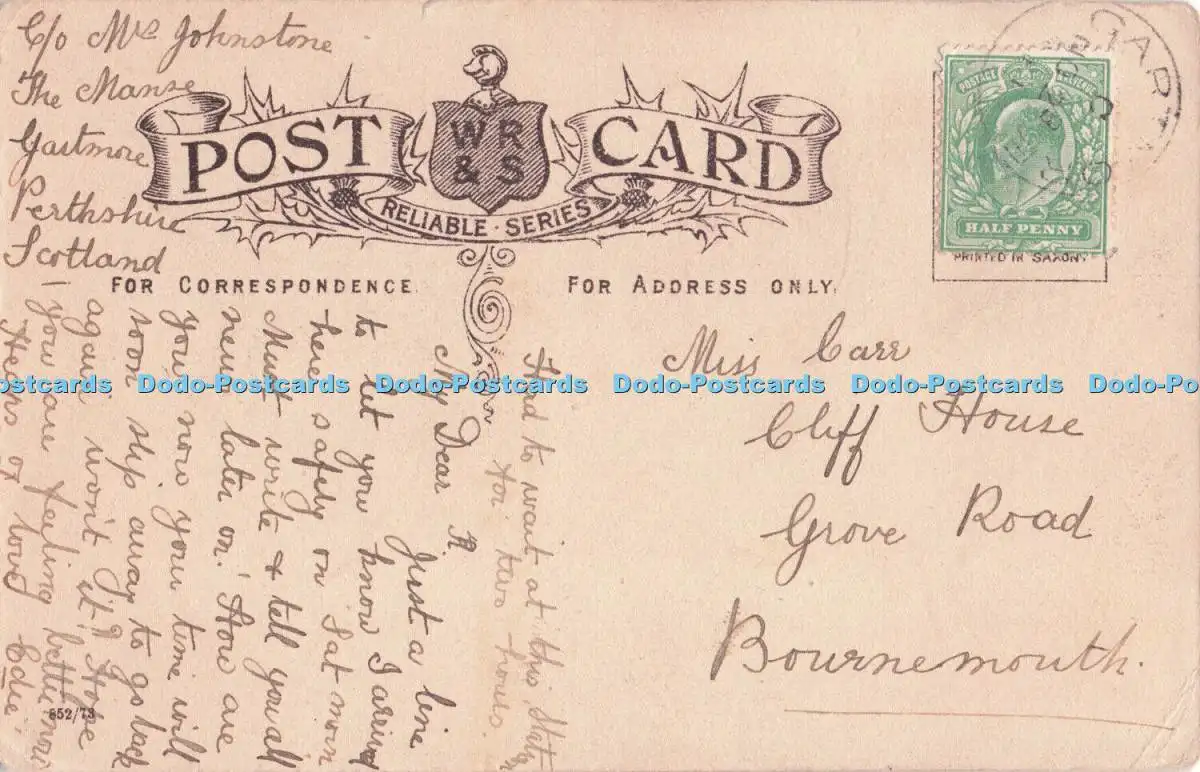 C/o Mrs Johnstone
The Manse
Gartmore
Perthshire
Scotland
POST CARD
WR
& S
RELIABLE · SERIES
FOR CORRESPONDENCE.
FOR ADDRESS ONLY.
POSTAGE
HALF PENNY
PRINTED IN SAXONY
Had to wait at this Statn
for two hours.
My Dear R.
Just a line
to let you know I arrived
here safely on Sat morn
Must write & tell you all
news later on! How are
you now your time will
soon slip away to go back
again won't it? Hope
you are feeling better now
Heaps of love Edie
Miss Carr
Cliff House
Grove Road
Bournemouth.
852/73
Postcards Dodo-Postcards Dodo-Postcards Dodo-Postcards Dodo-Postcards Dodo-P